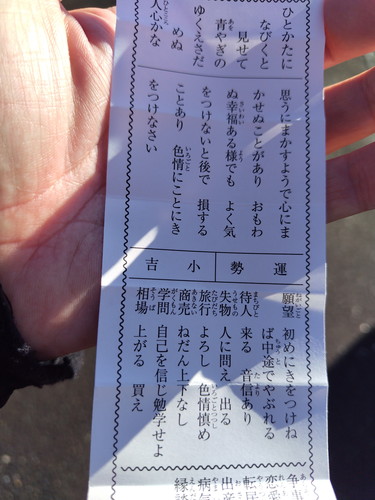 ひとかたに
なびくと
見せて
青やぎの
ゆくえさだ
めぬ
人心かな
思うにまかすようで心にま
かせぬことがあり おもわ
ぬ幸福ある様でも よく気
をつけないと後で 損する
ことあり 色情にことにき
をつけなさい
運勢 小吉
願望 初めにきをつけね
ば中途でやぶれる
待人 来る 音信あり
失物 人に問え 出る
旅行 よろし 色情慎め
商売 ねだん上下なし
学問 自己を信じ勉学せよ
相場 上がる 買え
争事
恋愛
転
出産
病気
縁談